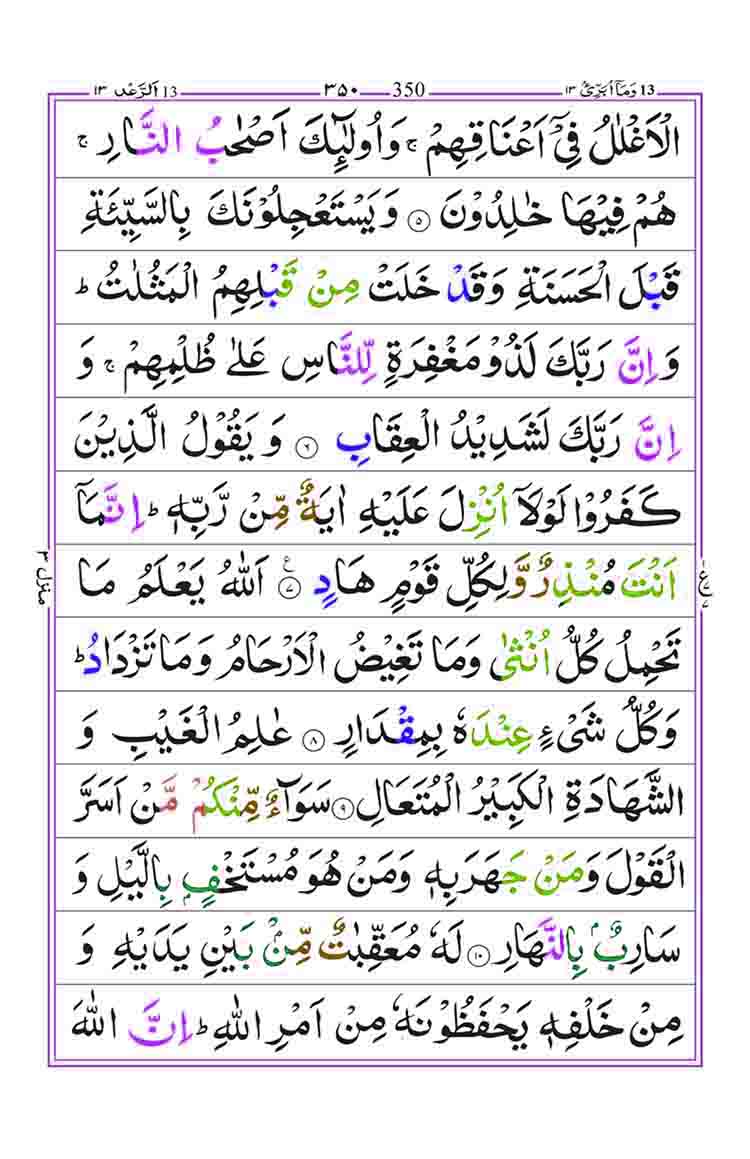 13 وَمَاۤ اُبَرِّئُ ١٣ 350 ٣٥٠ 13 اَلرَّعْد ١٣
الْاَغْلٰلُ فِىْۤ اَعْنَاقِهِمْ ۚ وَاُولٰٓئِكَ اَصْحٰبُ النَّارِ ۚ
هُمْ فِيْهَا خٰلِدُوْنَ ۝٥ وَيَسْتَعْجِلُوْنَكَ بِالسَّيِّئَةِ
قَبْلَ الْحَسَنَةِ وَقَدْ خَلَتْ مِنْ قَبْلِهِمُ الْمَثُلٰتُ ؕ
وَاِنَّ رَبَّكَ لَذُوْ مَغْفِرَةٍ لِّلنَّاسِ عَلٰى ظُلْمِهِمْ ۚ وَ
اِنَّ رَبَّكَ لَشَدِيْدُ الْعِقَابِ ۝٦ وَيَقُوْلُ الَّذِيْنَ
كَفَرُوْا لَوْلَاۤ اُنْزِلَ عَلَيْهِ اٰيَةٌ مِّنْ رَّبِّهٖ ؕ اِنَّمَاۤ
اَنْتَ مُنْذِرٌ وَّلِكُلِّ قَوْمٍ هَادٍ ۝٧ ع اَللّٰهُ يَعْلَمُ مَا
تَحْمِلُ كُلُّ اُنْثٰى وَمَا تَغِيْضُ الْاَرْحَامُ وَمَا تَزْدَادُ ؕ
وَكُلُّ شَىْءٍ عِنْدَهٗ بِمِقْدَارٍ ۝٨ عٰلِمُ الْغَيْبِ وَ
الشَّهَادَةِ الْكَبِيْرُ الْمُتَعَالِ ۝٩ سَوَآءٌ مِّنْكُمْ مَّنْ اَسَرَّ
الْقَوْلَ وَمَنْ جَهَرَ بِهٖ وَمَنْ هُوَ مُسْتَخْفٍۭ بِالَّيْلِ وَ
سَارِبٌۢ بِالنَّهَارِ ۝١٠ لَهٗ مُعَقِّبٰتٌ مِّنْۢ بَيْنِ يَدَيْهِ وَ
مِنْ خَلْفِهٖ يَحْفَظُوْنَهٗ مِنْ اَمْرِ اللّٰهِ ؕ اِنَّ اللّٰهَ
منزل ٣